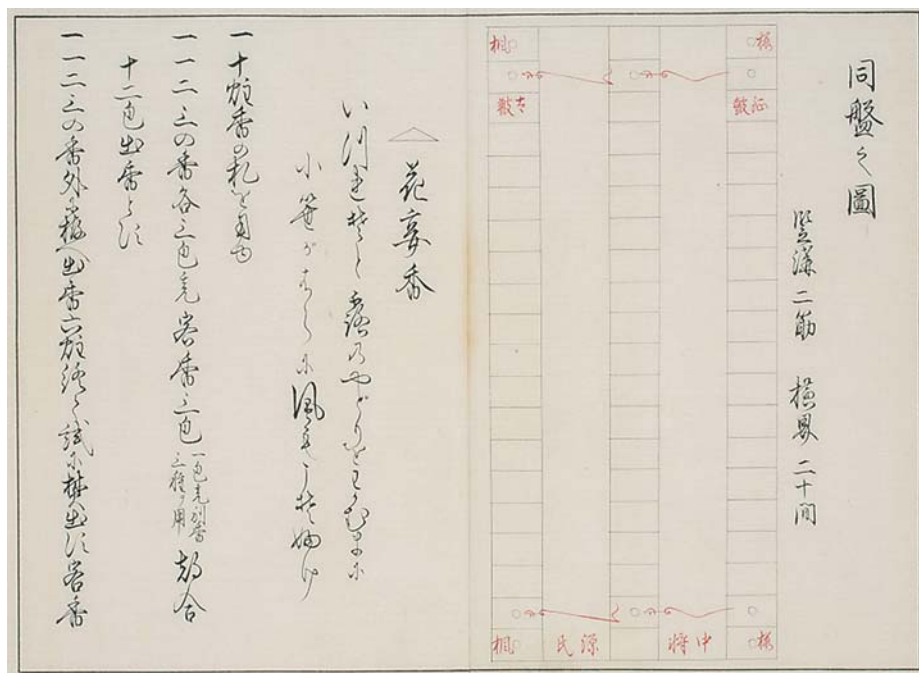 同盤之圖
竪溝二筋 横界二十間
桜
桐
桜
中将
源氏
桐
花宴香
いつれそと露のやとりをわかむまに
小笹がはらに風もこそ婦け
一十炷香の札を用ゆ
一一二三の香各三包充客香三包 一包充別香
三種ヲ用 都合
十二包出香とす
一一二三の香外に 出香六炷 試に 出す客香